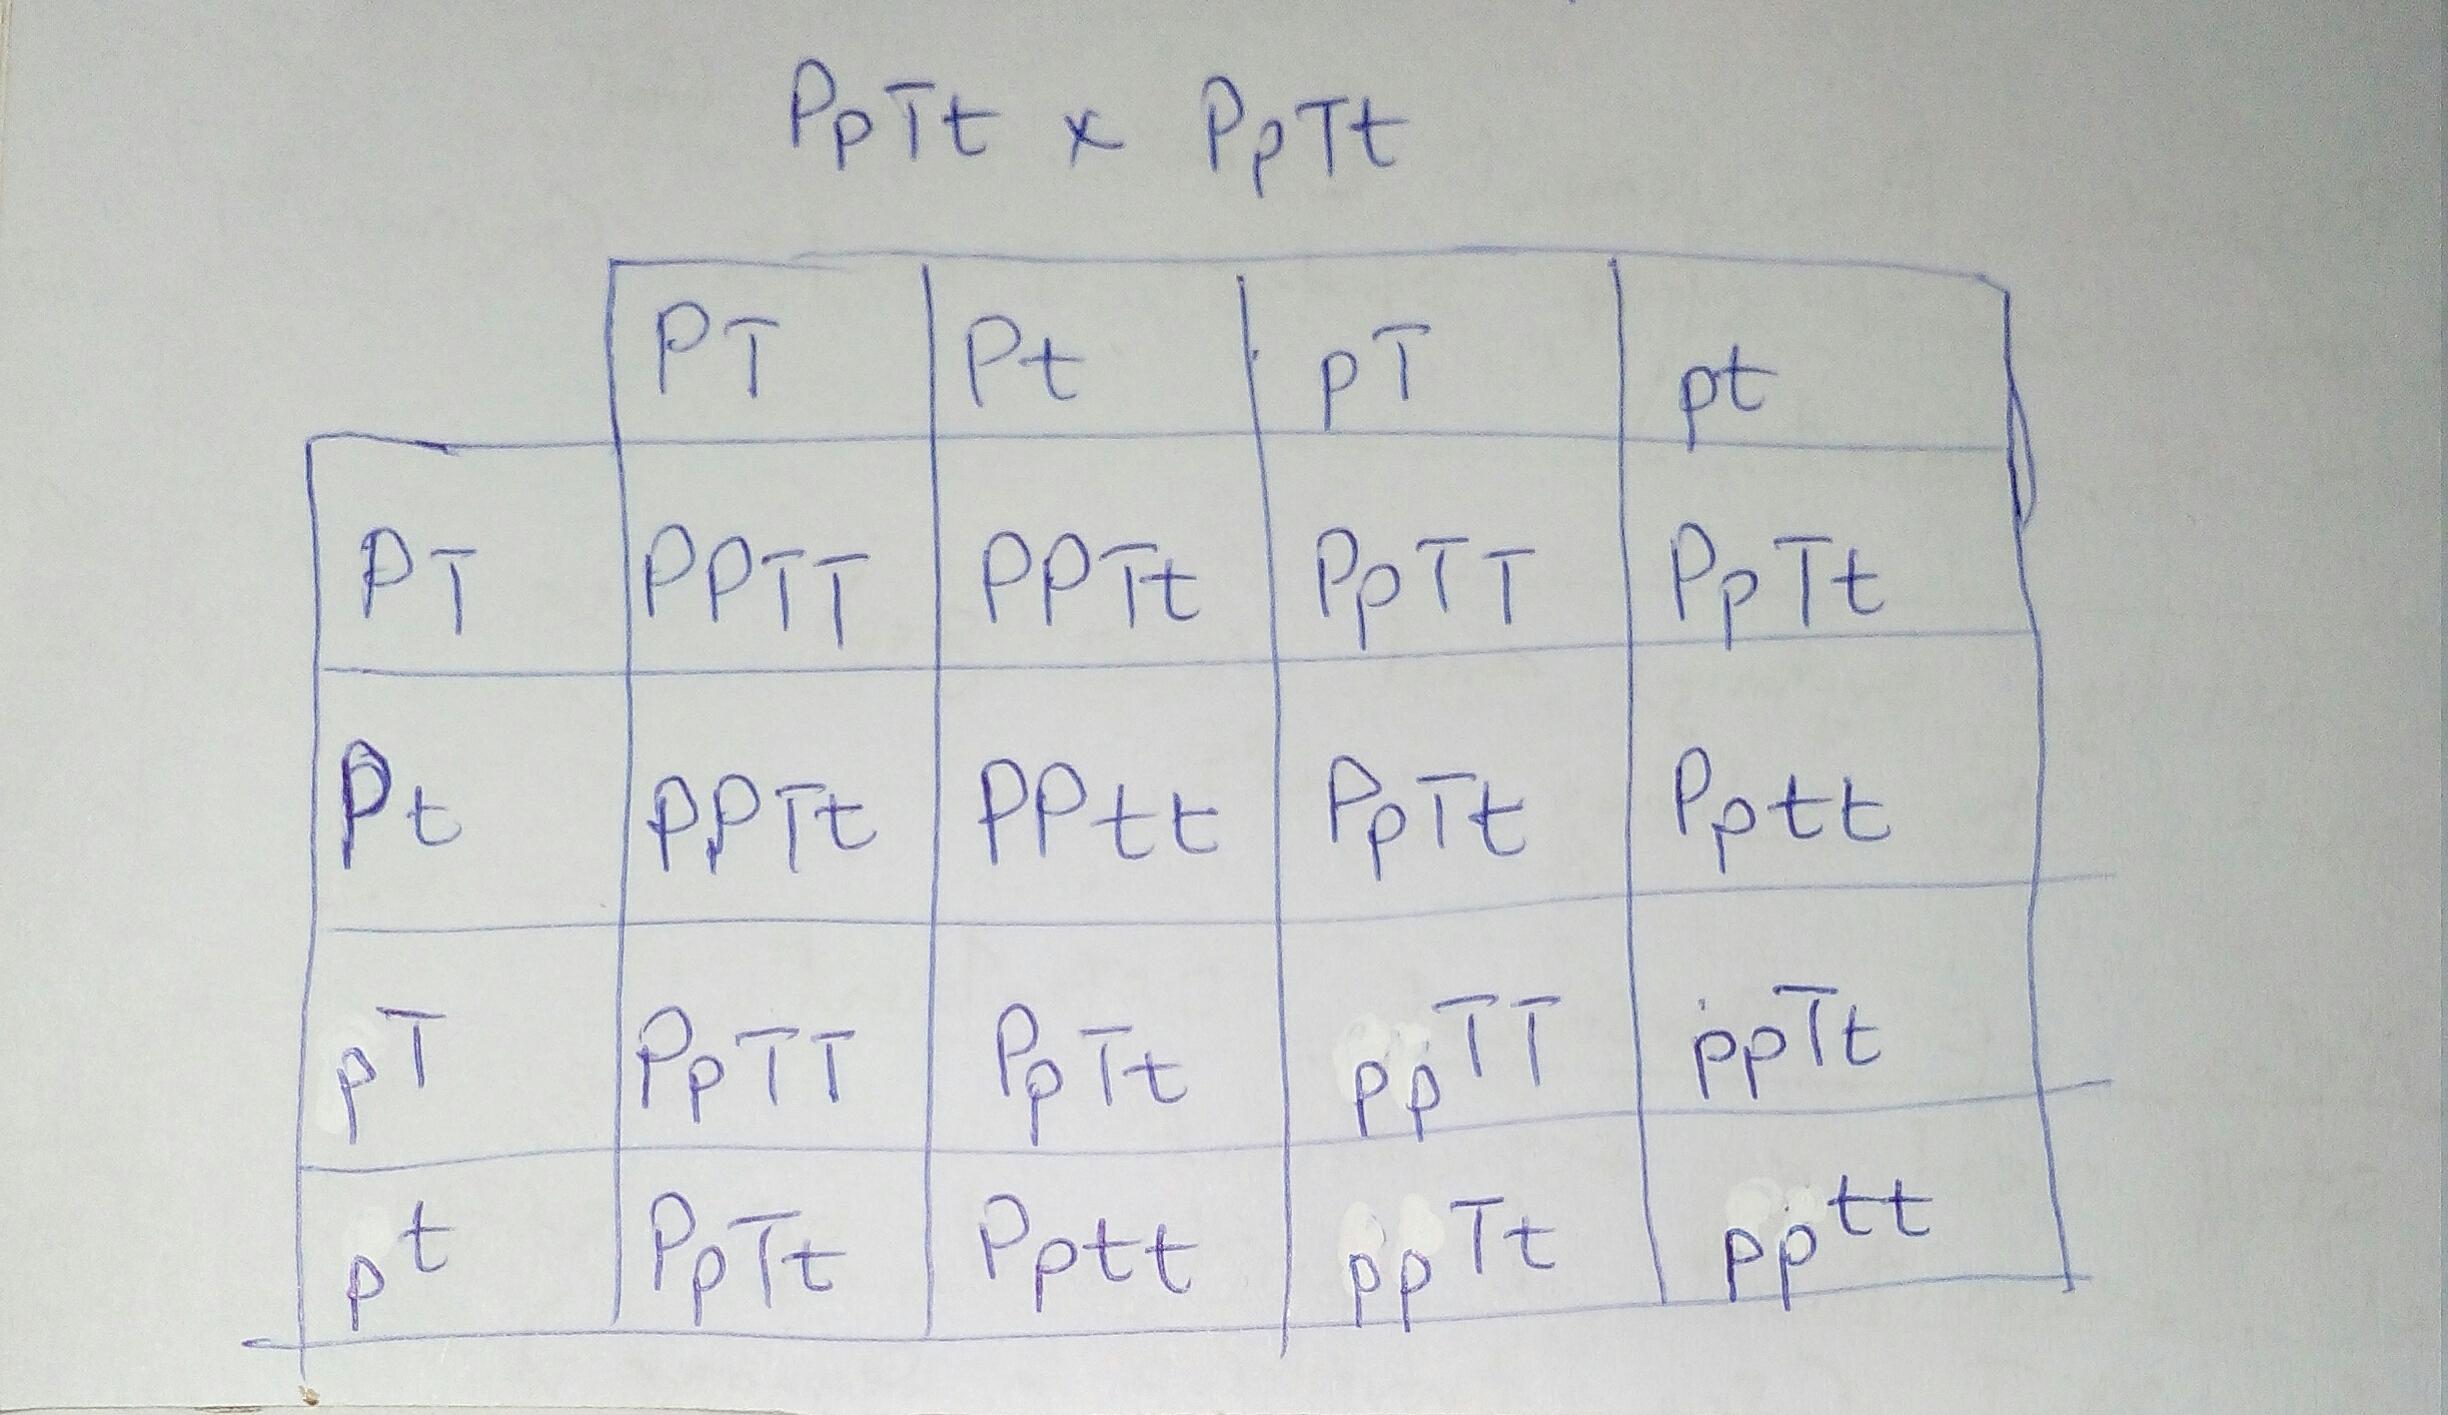 PpTt x PpTt
PT Pt pT pt
PT PPTT PPTt PpTT PpTt
Pt PPTt PPtt PpTt Pptt
pT PpTT PpTt ppTT ppTt
pt PpTt Pptt ppTt pptt